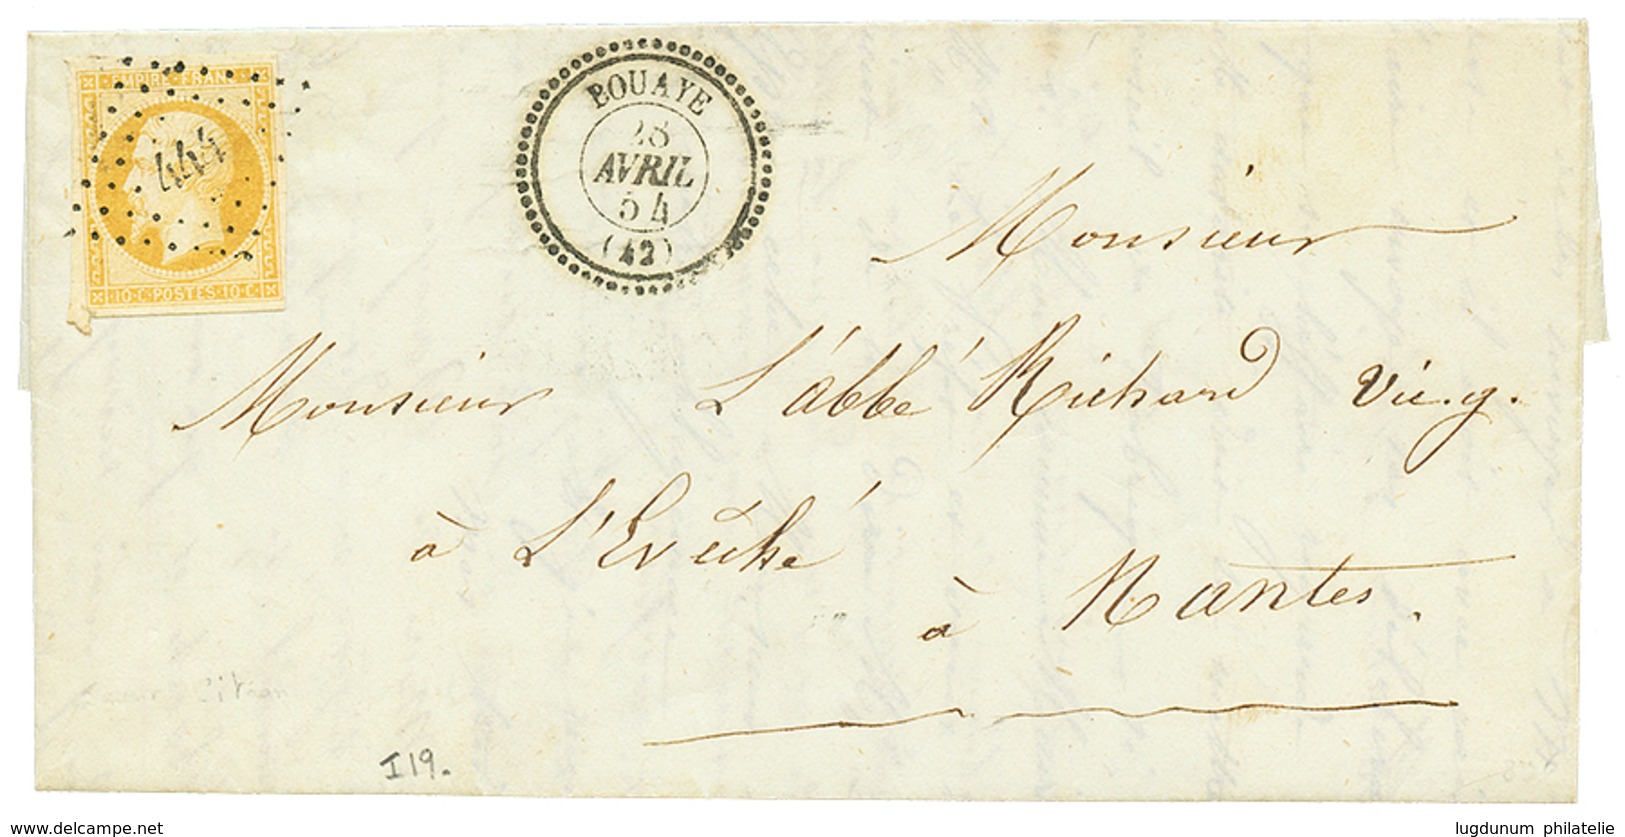 EMPIRE FRANC
444
10 · C · POSTES · 10 · C ·
BOUAYE
28
AVRIL
54
(42)
Monsieur
Monsieur L'abbé Richard Vic. g.
à L'Evêché
à Nantes.
I 19.
www.delcampe.net
lugdunum philatelie